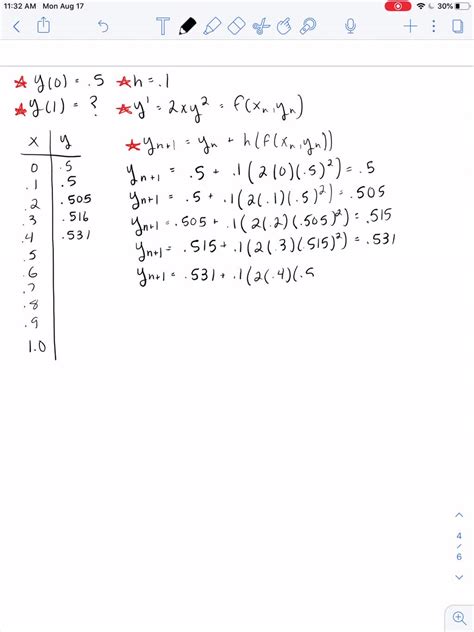 11:32 AM Mon Aug 17 30%
T
y(0) = .5 h = .1
y(1) = ? y' = 2xy² = f(xₙ, yₙ)
x y yₙ₊₁ = yₙ + h(f(xₙ, yₙ))
0 .5 yₙ₊₁ = .5 + .1(2(0)(.5)²) = .5
.1 .5 yₙ₊₁ = .5 + .1(2(.1)(.5)²) = .505
.2 .505 yₙ₊₁ = .505 + .1(2(.2)(.505)²) = .515
.3 .516 yₙ₊₁ = .515 + .1(2(.3)(.515)²) = .531
.4 .531 yₙ₊₁ = .531 + .1(2(.4)(.5
.5
.6
.7
.8
.9
1.0
4
/
6